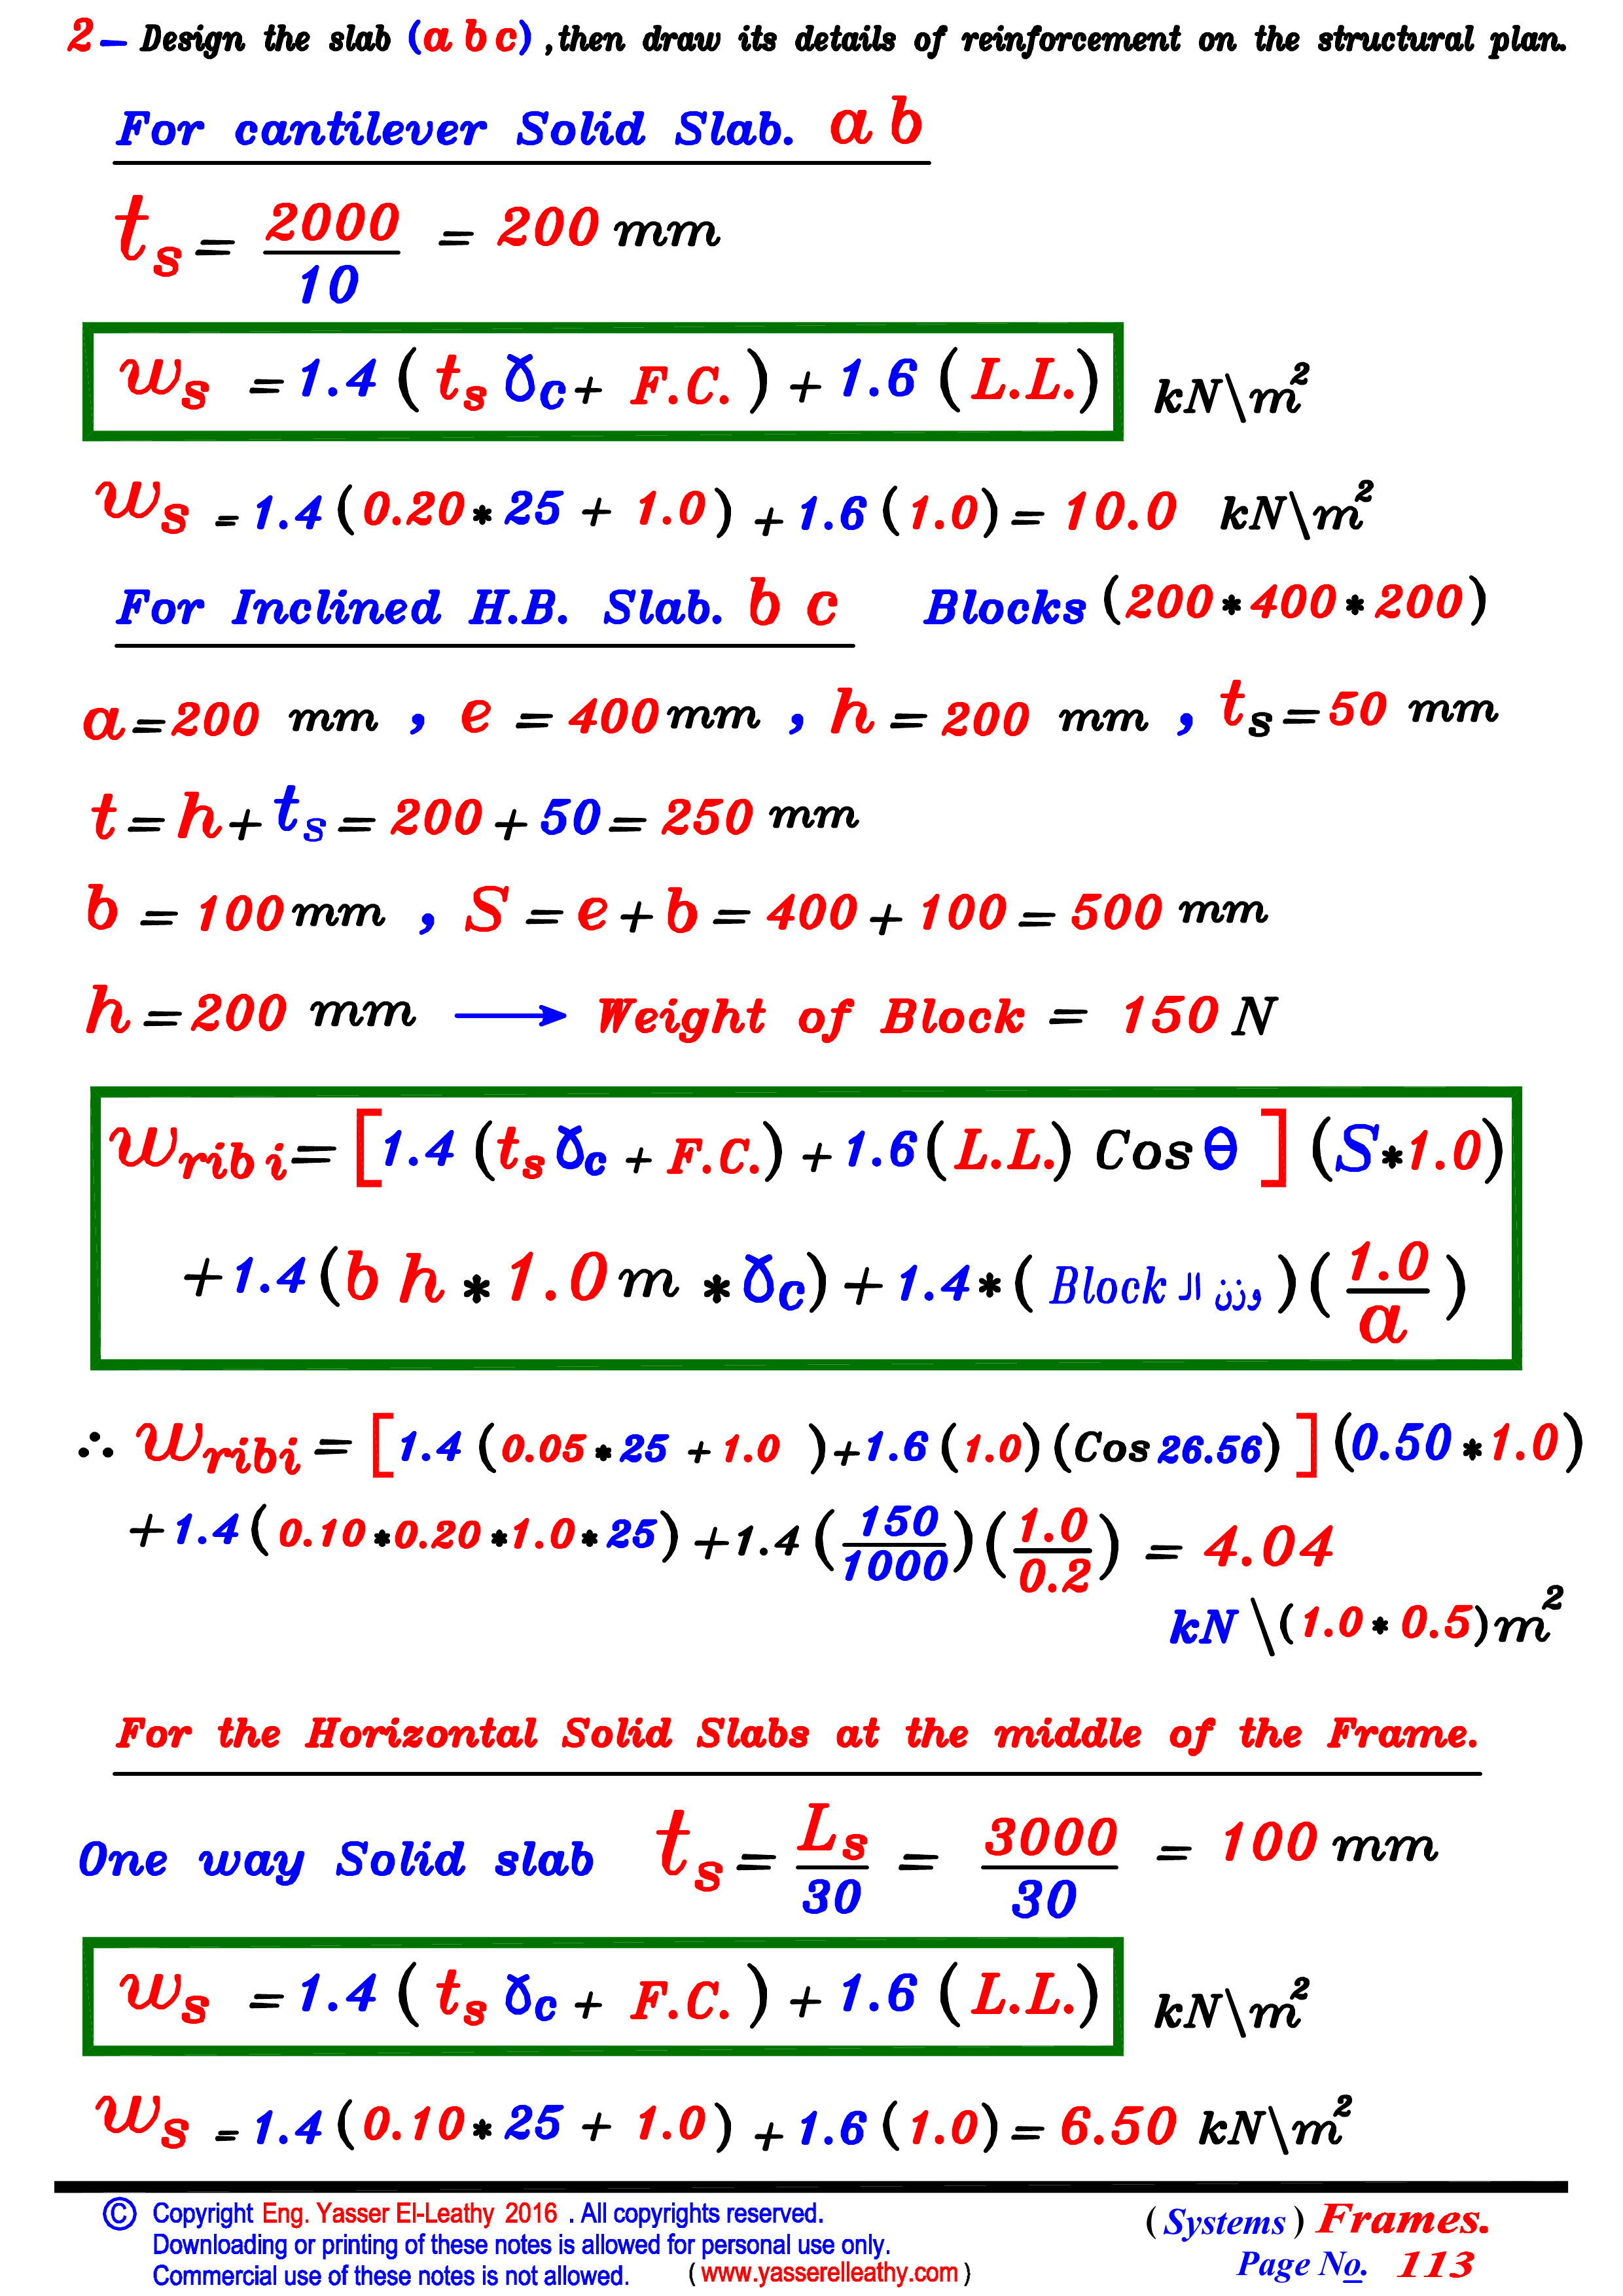 2- Design the slab (a b c) , then draw its details of reinforcement on the structural plan.
For cantilever Solid Slab. a b
ts = 2000/10 = 200 mm
ws = 1.4 ( ts γc + F.C. ) + 1.6 ( L.L. ) kN\m²
ws = 1.4 ( 0.20 * 25 + 1.0 ) + 1.6 ( 1.0 ) = 10.0 kN\m²
For Inclined H.B. Slab. b c Blocks ( 200 * 400 * 200 )
a = 200 mm , e = 400 mm , h = 200 mm , ts = 50 mm
t = h + ts = 200 + 50 = 250 mm
b = 100 mm , S = e + b = 400 + 100 = 500 mm
h = 200 mm → Weight of Block = 150 N
wribi = [ 1.4 ( ts γc + F.C. ) + 1.6 ( L.L. ) Cos θ ] ( S * 1.0 )
+ 1.4 ( b h * 1.0 m * γc ) + 1.4 * ( وزن الـ Block ) ( 1.0/a )
∴ wribi = [ 1.4 ( 0.05 * 25 + 1.0 ) + 1.6 ( 1.0 ) ( Cos 26.56 ) ] ( 0.50 * 1.0 )
+ 1.4 ( 0.10 * 0.20 * 1.0 * 25 ) + 1.4 ( 150/1000 ) ( 1.0/0.2 ) = 4.04
kN \ ( 1.0 * 0.5 ) m²
For the Horizontal Solid Slabs at the middle of the Frame.
One way Solid slab ts = Ls/30 = 3000/30 = 100 mm
ws = 1.4 ( ts γc + F.C. ) + 1.6 ( L.L. ) kN\m²
ws = 1.4 ( 0.10 * 25 + 1.0 ) + 1.6 ( 1.0 ) = 6.50 kN\m²
© Copyright Eng. Yasser El-Leathy 2016 . All copyrights reserved.
Downloading or printing of these notes is allowed for personal use only.
Commercial use of these notes is not allowed. ( www.yasserelleathy.com )
( Systems ) Frames.
Page No. 113